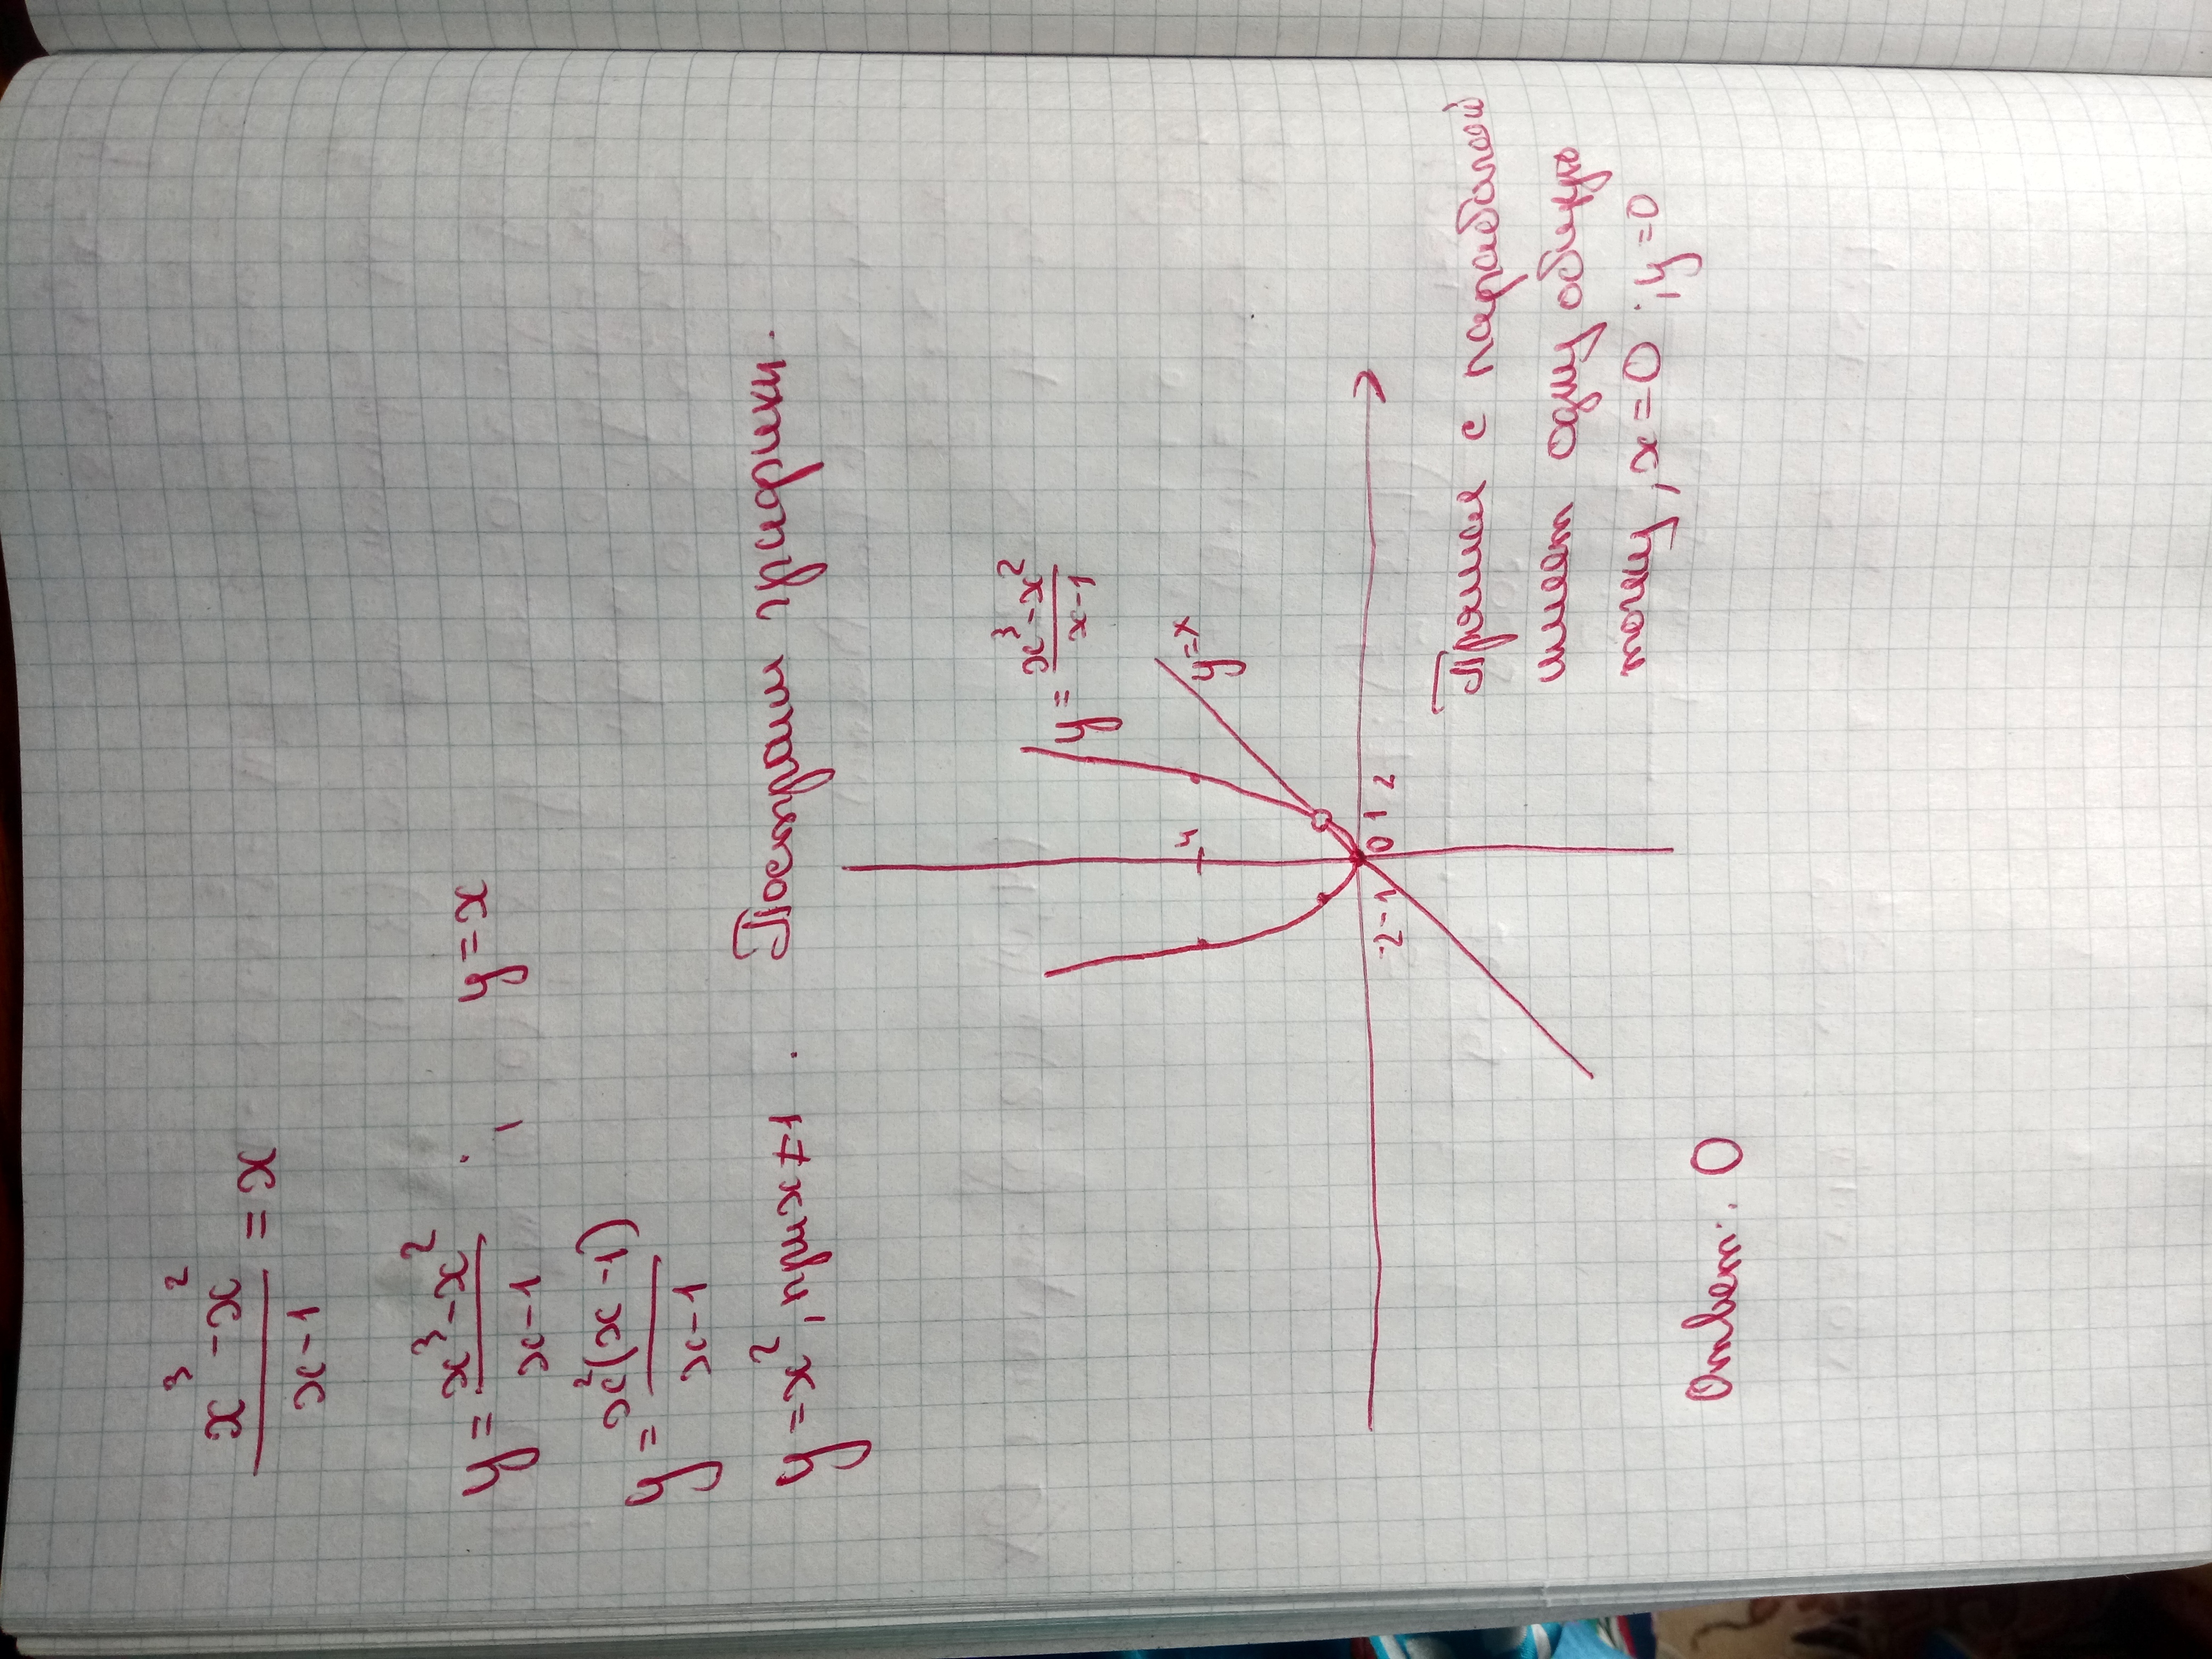 x³ - x² / x - 1 = x
y = x³ - x² / x - 1 , y = x
y = x²(x - 1) / x - 1
y = x², при x ≠ 1 . Построим графики.
y = x³ - x² / x - 1
y = x
4
-2 -1 0 1 2
Прямая с параболой
имеет одну общую
точку, x = 0 ; y = 0
Ответ: 0